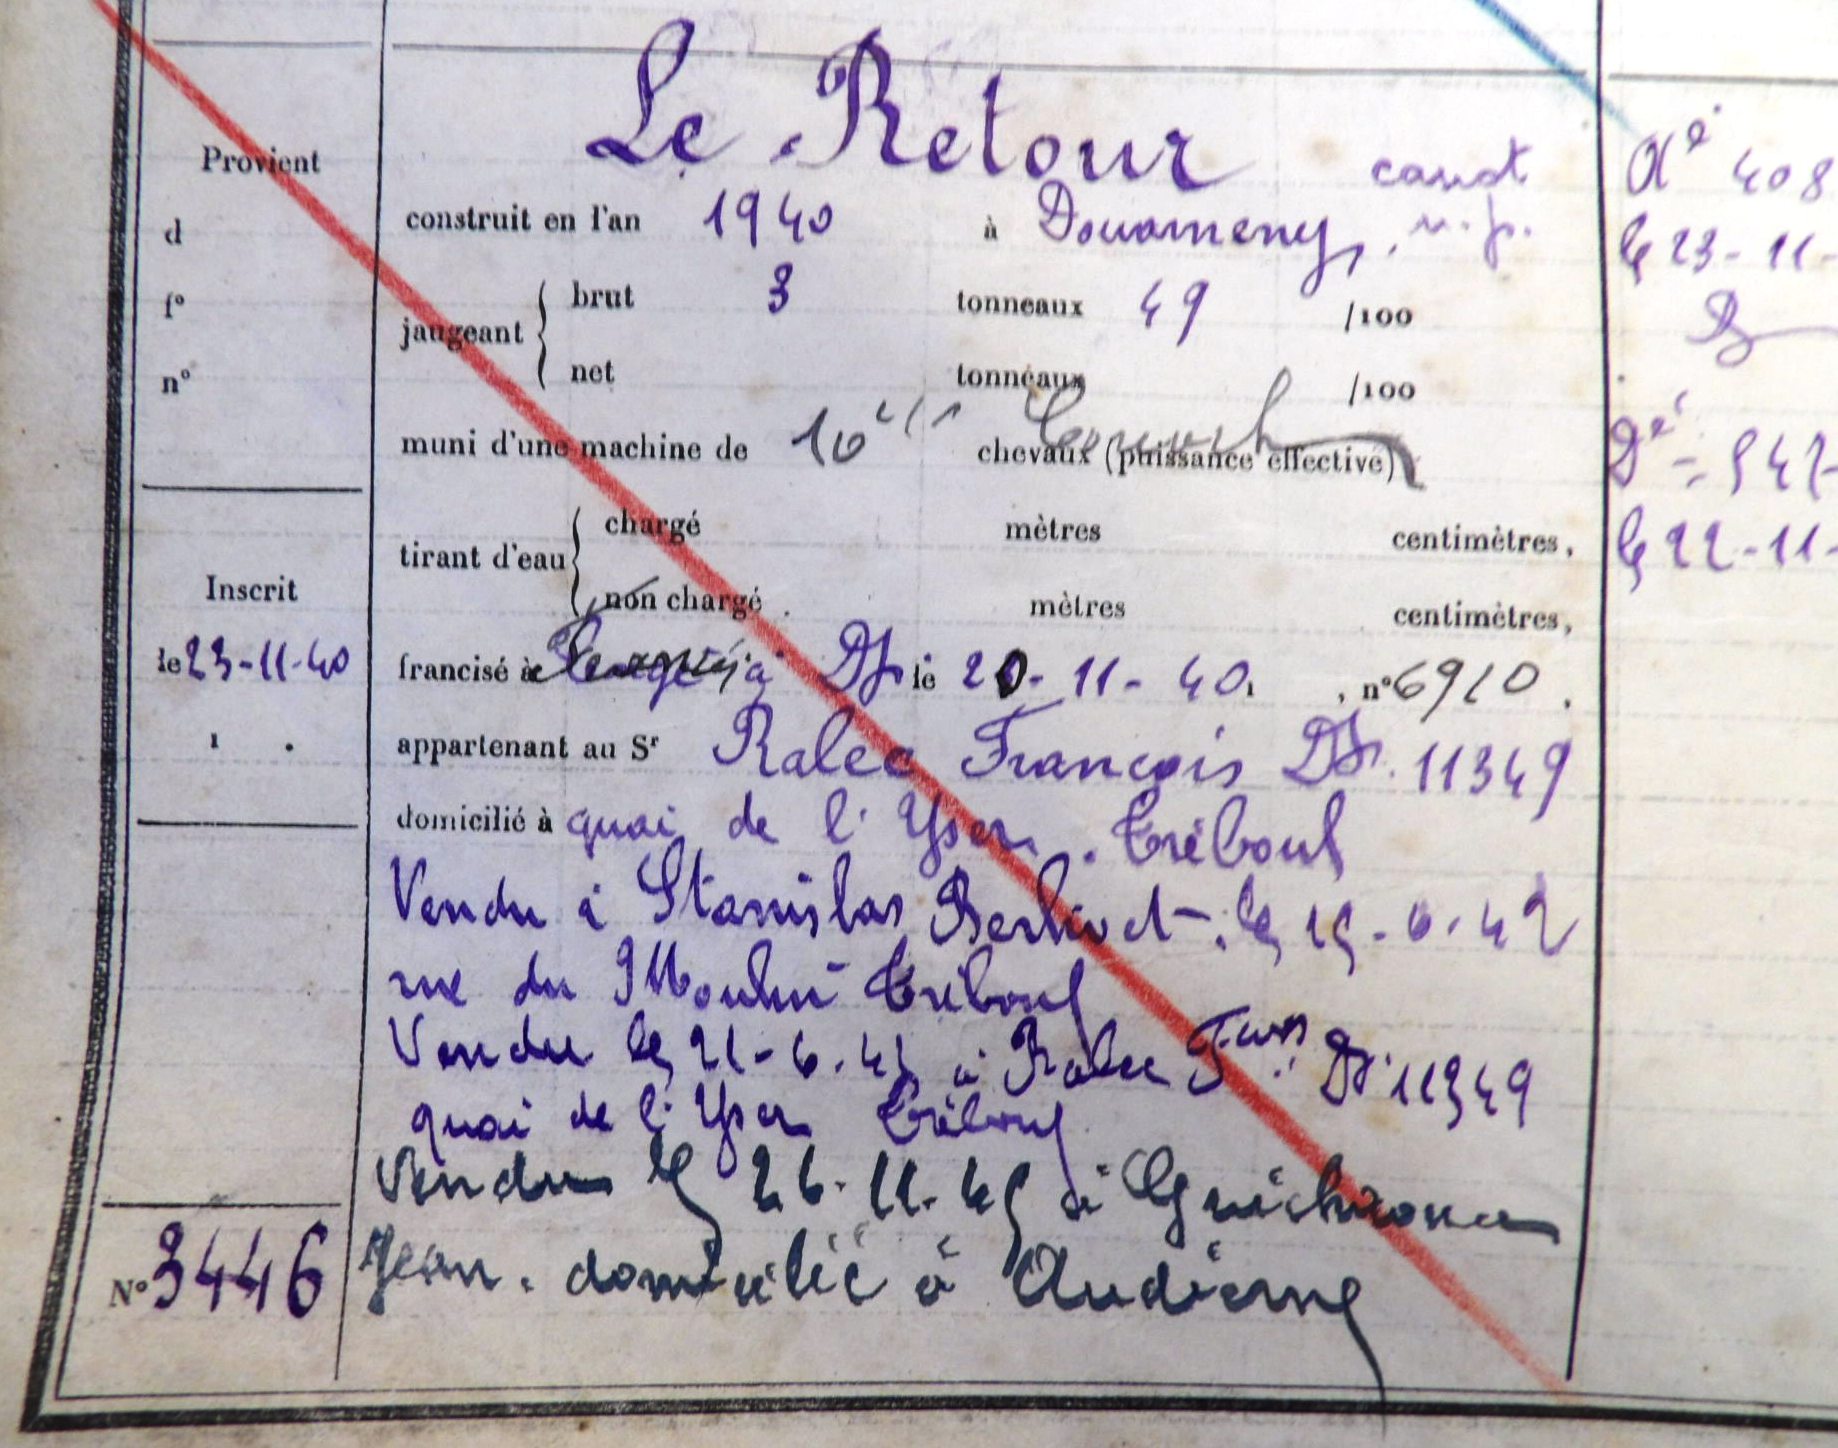 Le Retour
canot
Provient
d
f°
n°
construit en l'an 1940 à Douarnenez
jaugeant brut 3 tonneaux 49 /100
net tonneaux /100
muni d'une machine de 10 chevaux (puissance effective)
tirant d'eau chargé mètres centimètres,
non chargé mètres centimètres,
Inscrit
le 23-11-40
francisé à Dz le 20-11-40, n° 6910.
appartenant au Sr Ralec François Dz. 11349
domicilié à quai de l'Yser. Tréboul
Vendu à Stanislas Berlivet le 15-6-42
rue du Moulin Tréboul
Vendu le 21-6-45 à Ralec Fçois Dz 11349
quai de l'Yser Tréboul
Vendu le 26-11-45 à
Jean. domicilié à Audierne
N° 3446
408
le 23-11-
le 22-11-